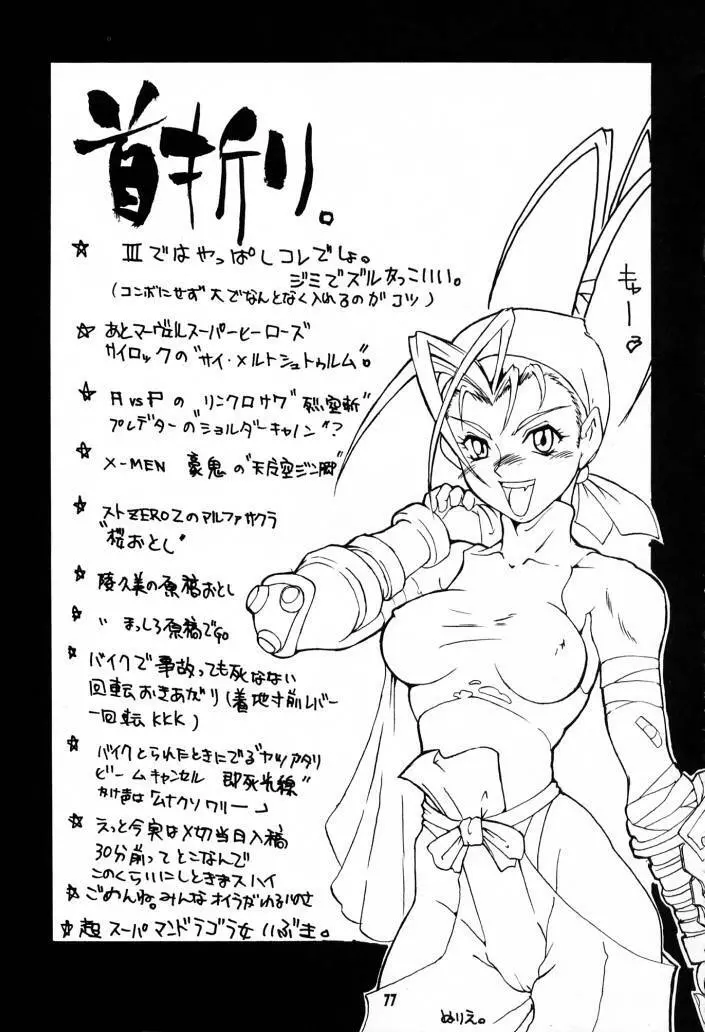 首折り。
☆ Ⅲではやっぱしコレでしょ。
ジミでズルかっこいい。
(コンボにせず大でなんとなく入れるのがコツ)
☆ あとマーヴェルスーパーヒーローズ
サイロックの"サイ・メルトシュトゥルム"。
☆ AvsPの リンクロサワ"死空斬"
プレデターの"ショルダーキャノン"?
☆ X-MEN 豪鬼の"天空ジン脚"
☆ ストZERO2のマルファサクラ
"桜おとし"
☆ 陵久美の原稿おとし
☆ 〃 まっしろ原稿でGO
☆ バイクで事故っても死なない
回転おきあがり(着地寸前レバー
一回転KKK)
☆ バイクとられたときにでる"ヤツアタリ
ビームキャンセル 即死光線"
かけ声は「ムナクソワリー」
☆ えっと今実は〆切当日入稿
30分前ってとこなんで
このくらいにしときまスハイ
☆ ごめんね。みんなオイラがわるいのさ
☆ 超スーパーマンドラゴラ女いぶき。
キャー♡
77
ぬりえ。